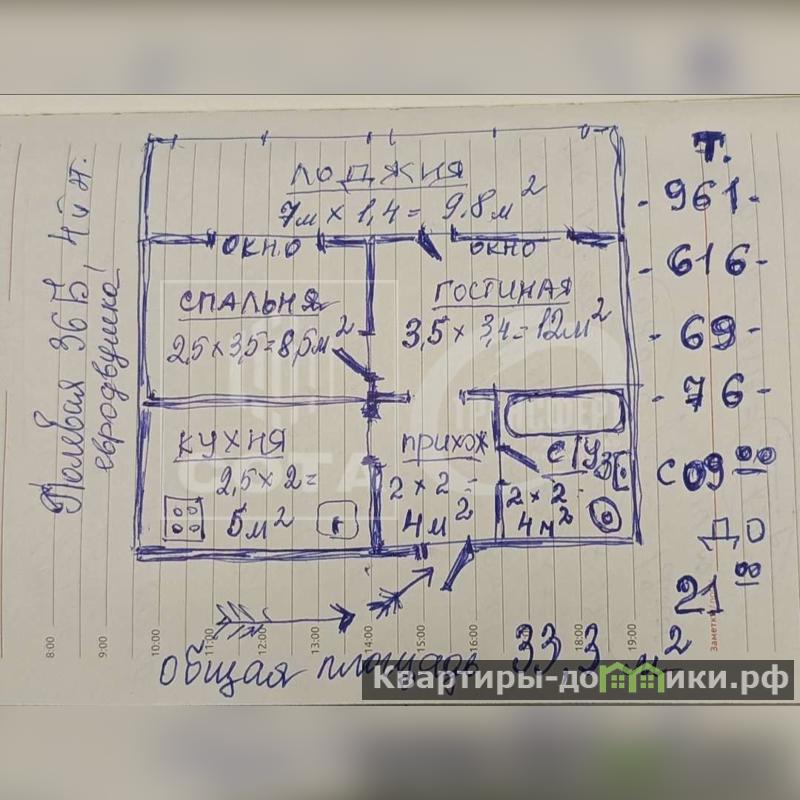 Полевая 36Б, 4й эт.
евродвушка!
ЛОДЖИЯ
7м × 1,4 = 9.8м²
ОКНО
ОКНО
СПАЛЬНЯ
2,5 × 3,5 = 8,5м²
ГОСТИНАЯ
3,5 × 3,4 = 12м²
КУХНЯ
2,5 × 2 =
5м²
ПРИХОЖ
2 × 2 =
4м²
С/УЗ
2 × 2 =
4м²
Т.
- 961 -
- 616 -
- 69 -
- 76 -
С 09 00
ДО
21 00
8:00
9:00
10:00
11:00
12:00
13:00
14:00
15:00
16:00
18:00
19:00
Заметки
общая площадь 33,3 м²
Квартиры-домики.рф